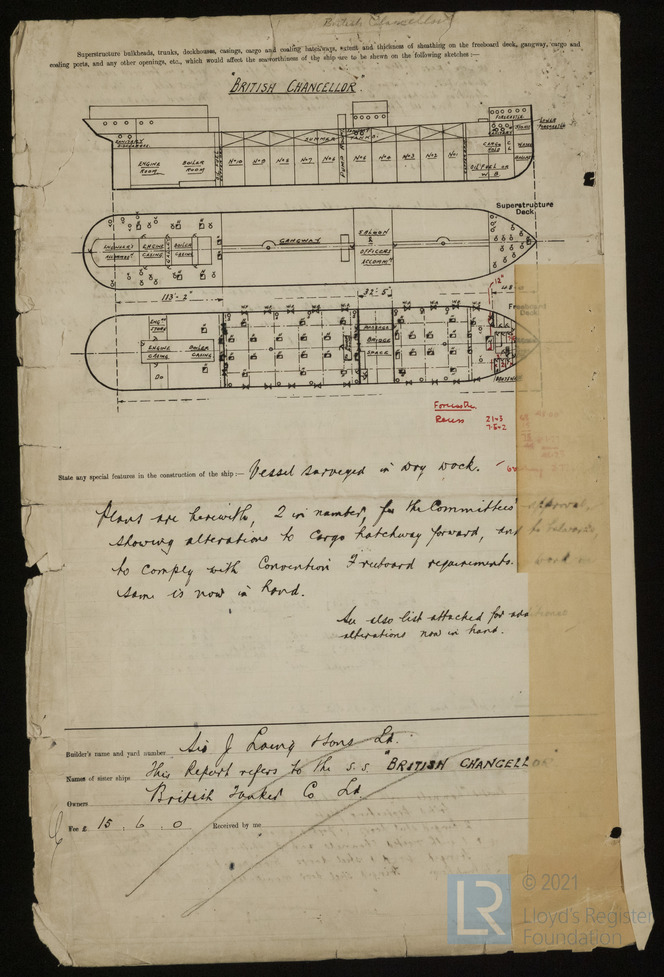 British Chancellor
Superstructure bulkheads, trunks, deckhouses, casings, cargo and coaling hatchways, extent and thickness of sheathing on the freeboard deck, gangway, cargo and
coaling ports, and any other openings, etc., which would affect the seaworthiness of the ship are to be shewn on the following sketches:—
"BRITISH CHANCELLOR"
FORECASTLE
SANITARY
DISCHARGES
SUMMER TANKS.
ENGINE
ROOM
BOILER
ROOM
No 10
No 9
No 8
No 7
No 6
PUMP
No 5
No 4
No 3
No 2
No 1
CARGO
HOLD
OIL FUEL OR
W. B.
Superstructure
Deck
ENGINEER'S
ACCOMMDN
ENGINE
CASING
BOILER
CASING
GANGWAY
SALOON
&
OFFICERS
ACCOMMDN
113'-2"
32'-5"
12"
Freeboard
Deck
ENGRS
STORE
ENGINE
CASING
BOILER
CASING
DO
BRIDGE
SPACE
Forecastle
Recess
21·3
7·5·2
State any special features in the construction of the ship:— Vessel surveyed in dry dock.
Plans are herewith, 2 in number, for the Committee's approval,
showing alterations to cargo hatchway forward, and to bulwarks,
to comply with Convention Freeboard requirements. work on
same is now in hand.
See also list attached for additional
alterations now in hand.
Builder's name and yard number Sir J Laing & Sons Ld.
Names of sister ships This Report refers to the s.s. "BRITISH CHANCELLOR
Owners British Tanker Co Ld.
Fee £ 15 . 6 . 0 Received by me
LR
© 2021
Lloyd's Register
Foundation